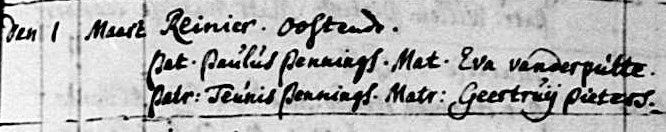 Den 1 Maart Reinier. Oostende.
Pat. Paulús Pennings. Mat. Eva vanderpútte.
Patr: Teúnis Pennings. Matr: Geertruij Pieters.